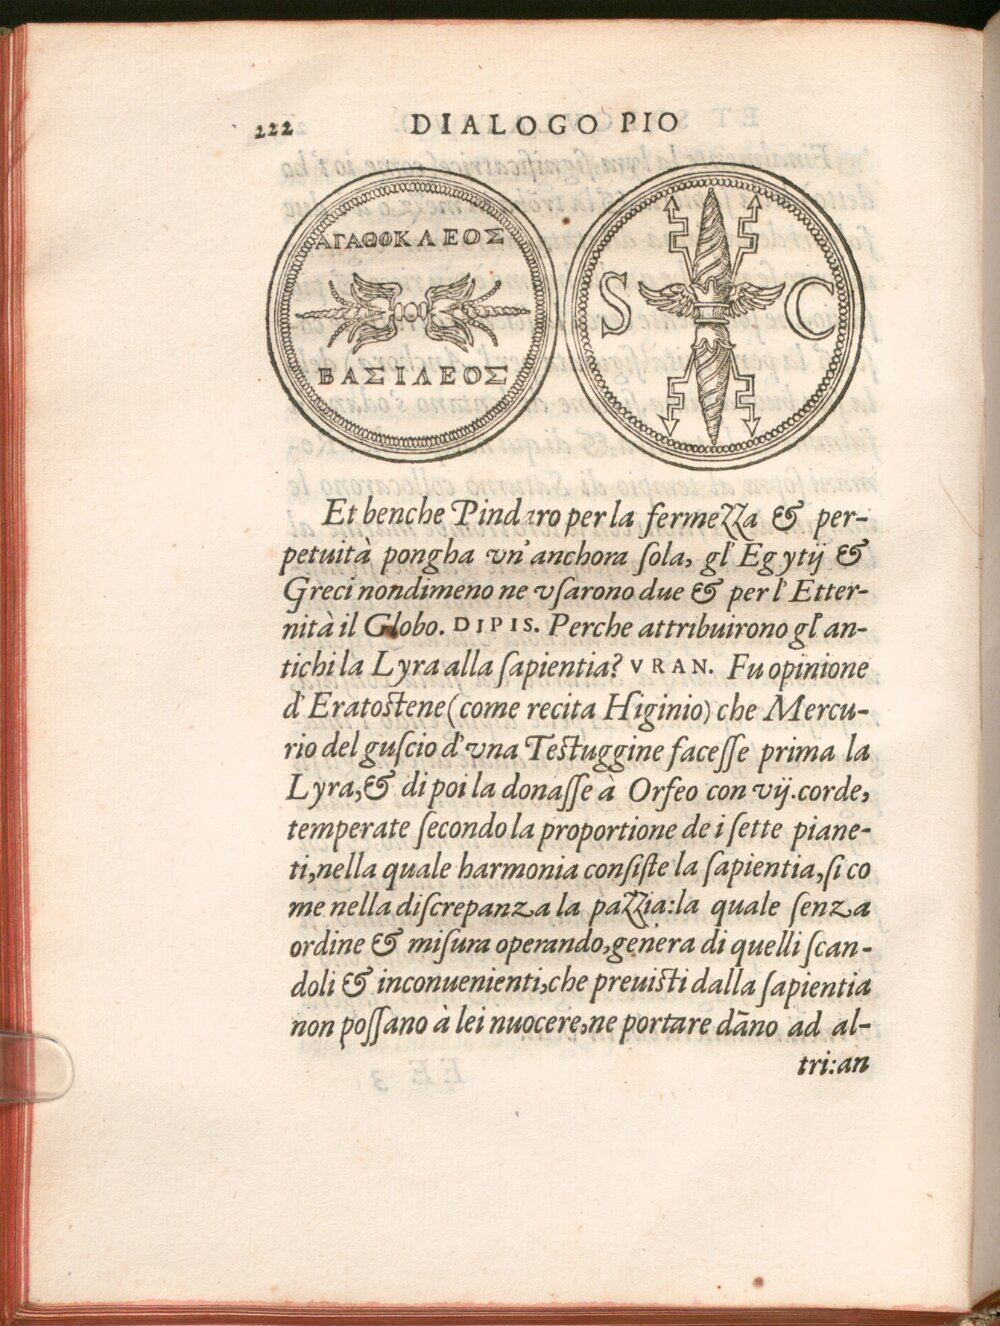 222 DIALOGO PIO
ΑΓΑΘΟΚΛΕΟΣ
ΒΑΣΙΛΕΟΣ
S C
Et benche Pindaro per la fermezza & per-
petuità pongha vn'anchora sola, gl'Egytij &
Greci nondimeno ne vsarono due & per l'Etter-
nità il Globo. DIPIS. Perche attribuirono gl'an-
tichi la Lyra alla sapientia? VRAN. Fu opinione
d'Eratostene (come recita Higinio) che Mercu-
rio del guscio d'vna Testuggine facesse prima la
Lyra, & di poi la donasse à Orfeo con vij. corde,
temperate secondo la proportione de i sette piane-
ti, nella quale harmonia consiste la sapientia, si co
me nella discrepanza la pazzia: la quale senza
ordine & misura operando, genera di quelli scan-
doli & inconuenienti, che preuisti dalla sapientia
non possano à lei nuocere, ne portare dāno ad al-
tri: an